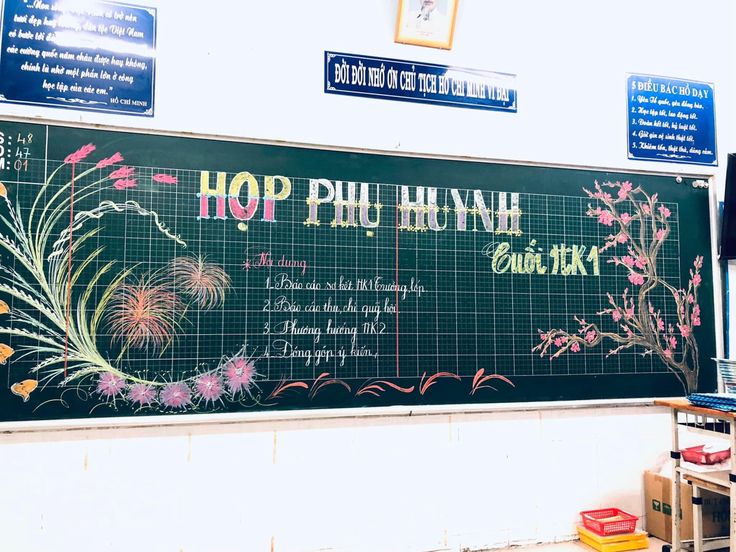 "...Non sông Việt Nam có trở nên
tươi đẹp hay không, dân tộc Việt Nam
có bước tới đài
các cường quốc năm châu được hay không,
chính là nhờ một phần lớn ở công
học tập của các em."
HỒ CHÍ MINH
ĐỜI ĐỜI NHỚ ƠN CHỦ TỊCH HỒ CHÍ MINH VĨ ĐẠI
5 ĐIỀU BÁC HỒ DẠY
1. Yêu Tổ quốc, yêu đồng bào.
2. Học tập tốt, lao động tốt.
3. Đoàn kết tốt, kỷ luật tốt.
4. Giữ gìn vệ sinh thật tốt.
5. Khiêm tốn, thật thà, dũng cảm.
S: 48
Đ: 47
M: 01
HỌP PHỤ HUYNH
Cuối HK1
* Nội dung
1. Báo cáo sơ kết HK1 Trường, lớp.
2. Báo cáo thu, chi quỹ hội
3. Phương hướng HK2
4. Đóng góp ý kiến.